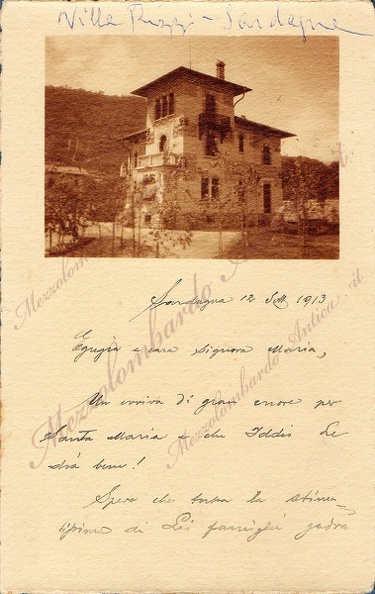 Villa Rizzi - Sardagna
Sardagna 12 Sett 1913
Egregia e cara Signora Maria,
Un evviva di gran cuore per
Santa Maria e che Iddio Le
dia bene!
Spero che tutta la stima-
tissima di Lei famiglia godrà
Mezzolombardo Antica .it
Mezzolombardo Antica .it